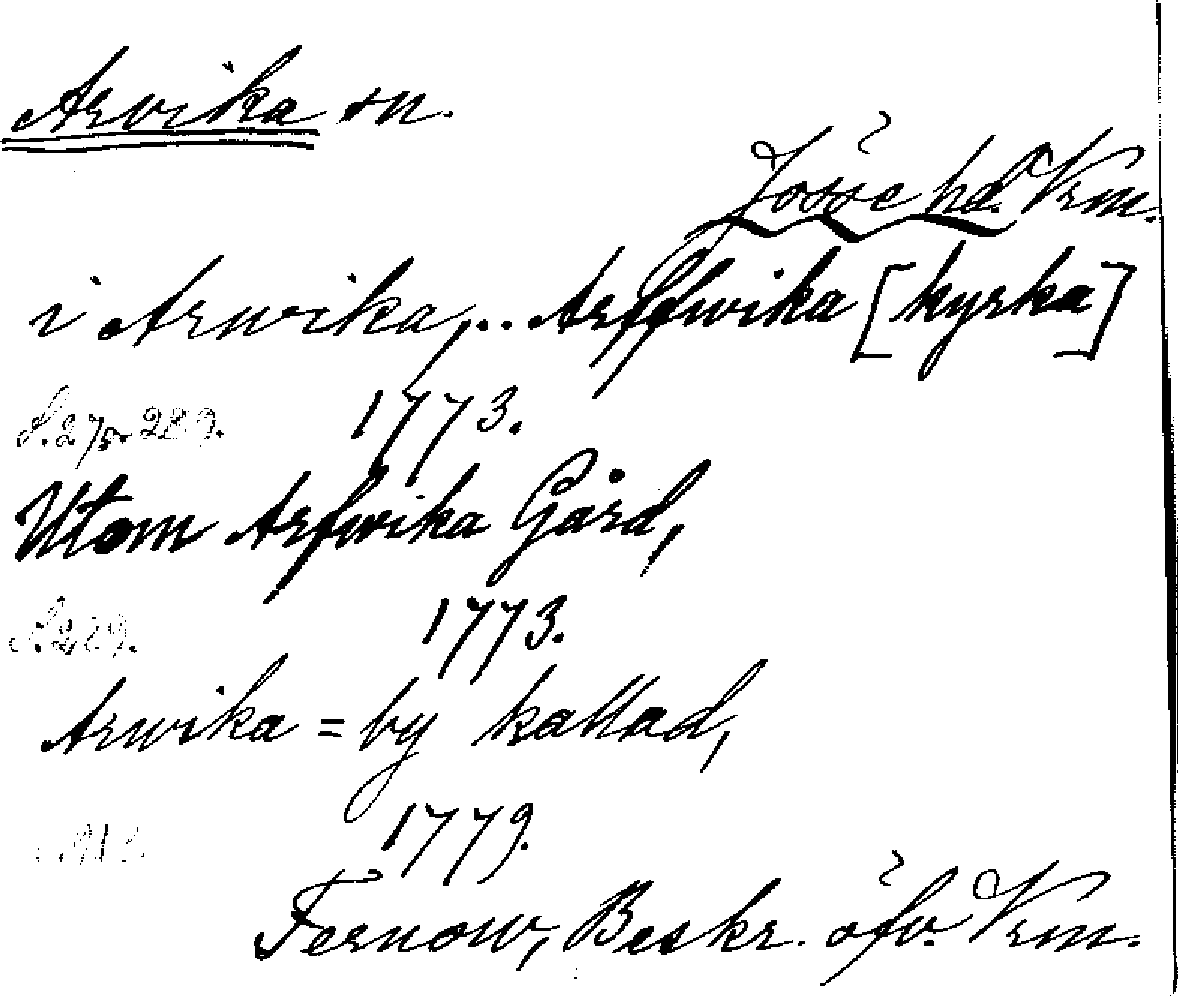 Arvika sn.
Jösse hd. Vrm.
i Arwika,.. Arffwika [kyrka]
S. 275. 289. 1773.
Utom Arfwika Gård,
S. 289. 1773.
Arwika = by kallad,
1779.
Fernow, Beskr. öfv. Vrm.